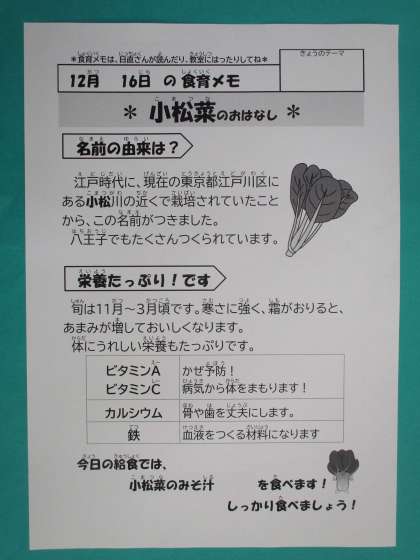 ＊食育メモは、日直さんが読んだり、教室にはったりしてね＊
きょうのテーマ
12月　16日　の食育メモ
＊　小松菜のおはなし　＊
名前の由来は？
江戸時代に、現在の東京都江戸川区に
ある小松川の近くで栽培されていたこと
から、この名前がつきました。
八王子でもたくさんつくられています。
栄養たっぷり！です
旬は11月～3月頃です。寒さに強く、霜がおりると、
あまみが増しておいしくなります。
体にうれしい栄養もたっぷりです。
ビタミンA　かぜ予防！
ビタミンC　病気から体をまもります！
カルシウム　骨や歯を丈夫にします。
鉄　血液をつくる材料になります
今日の給食では、
小松菜のみそ汁　を食べます！
しっかり食べましょう！